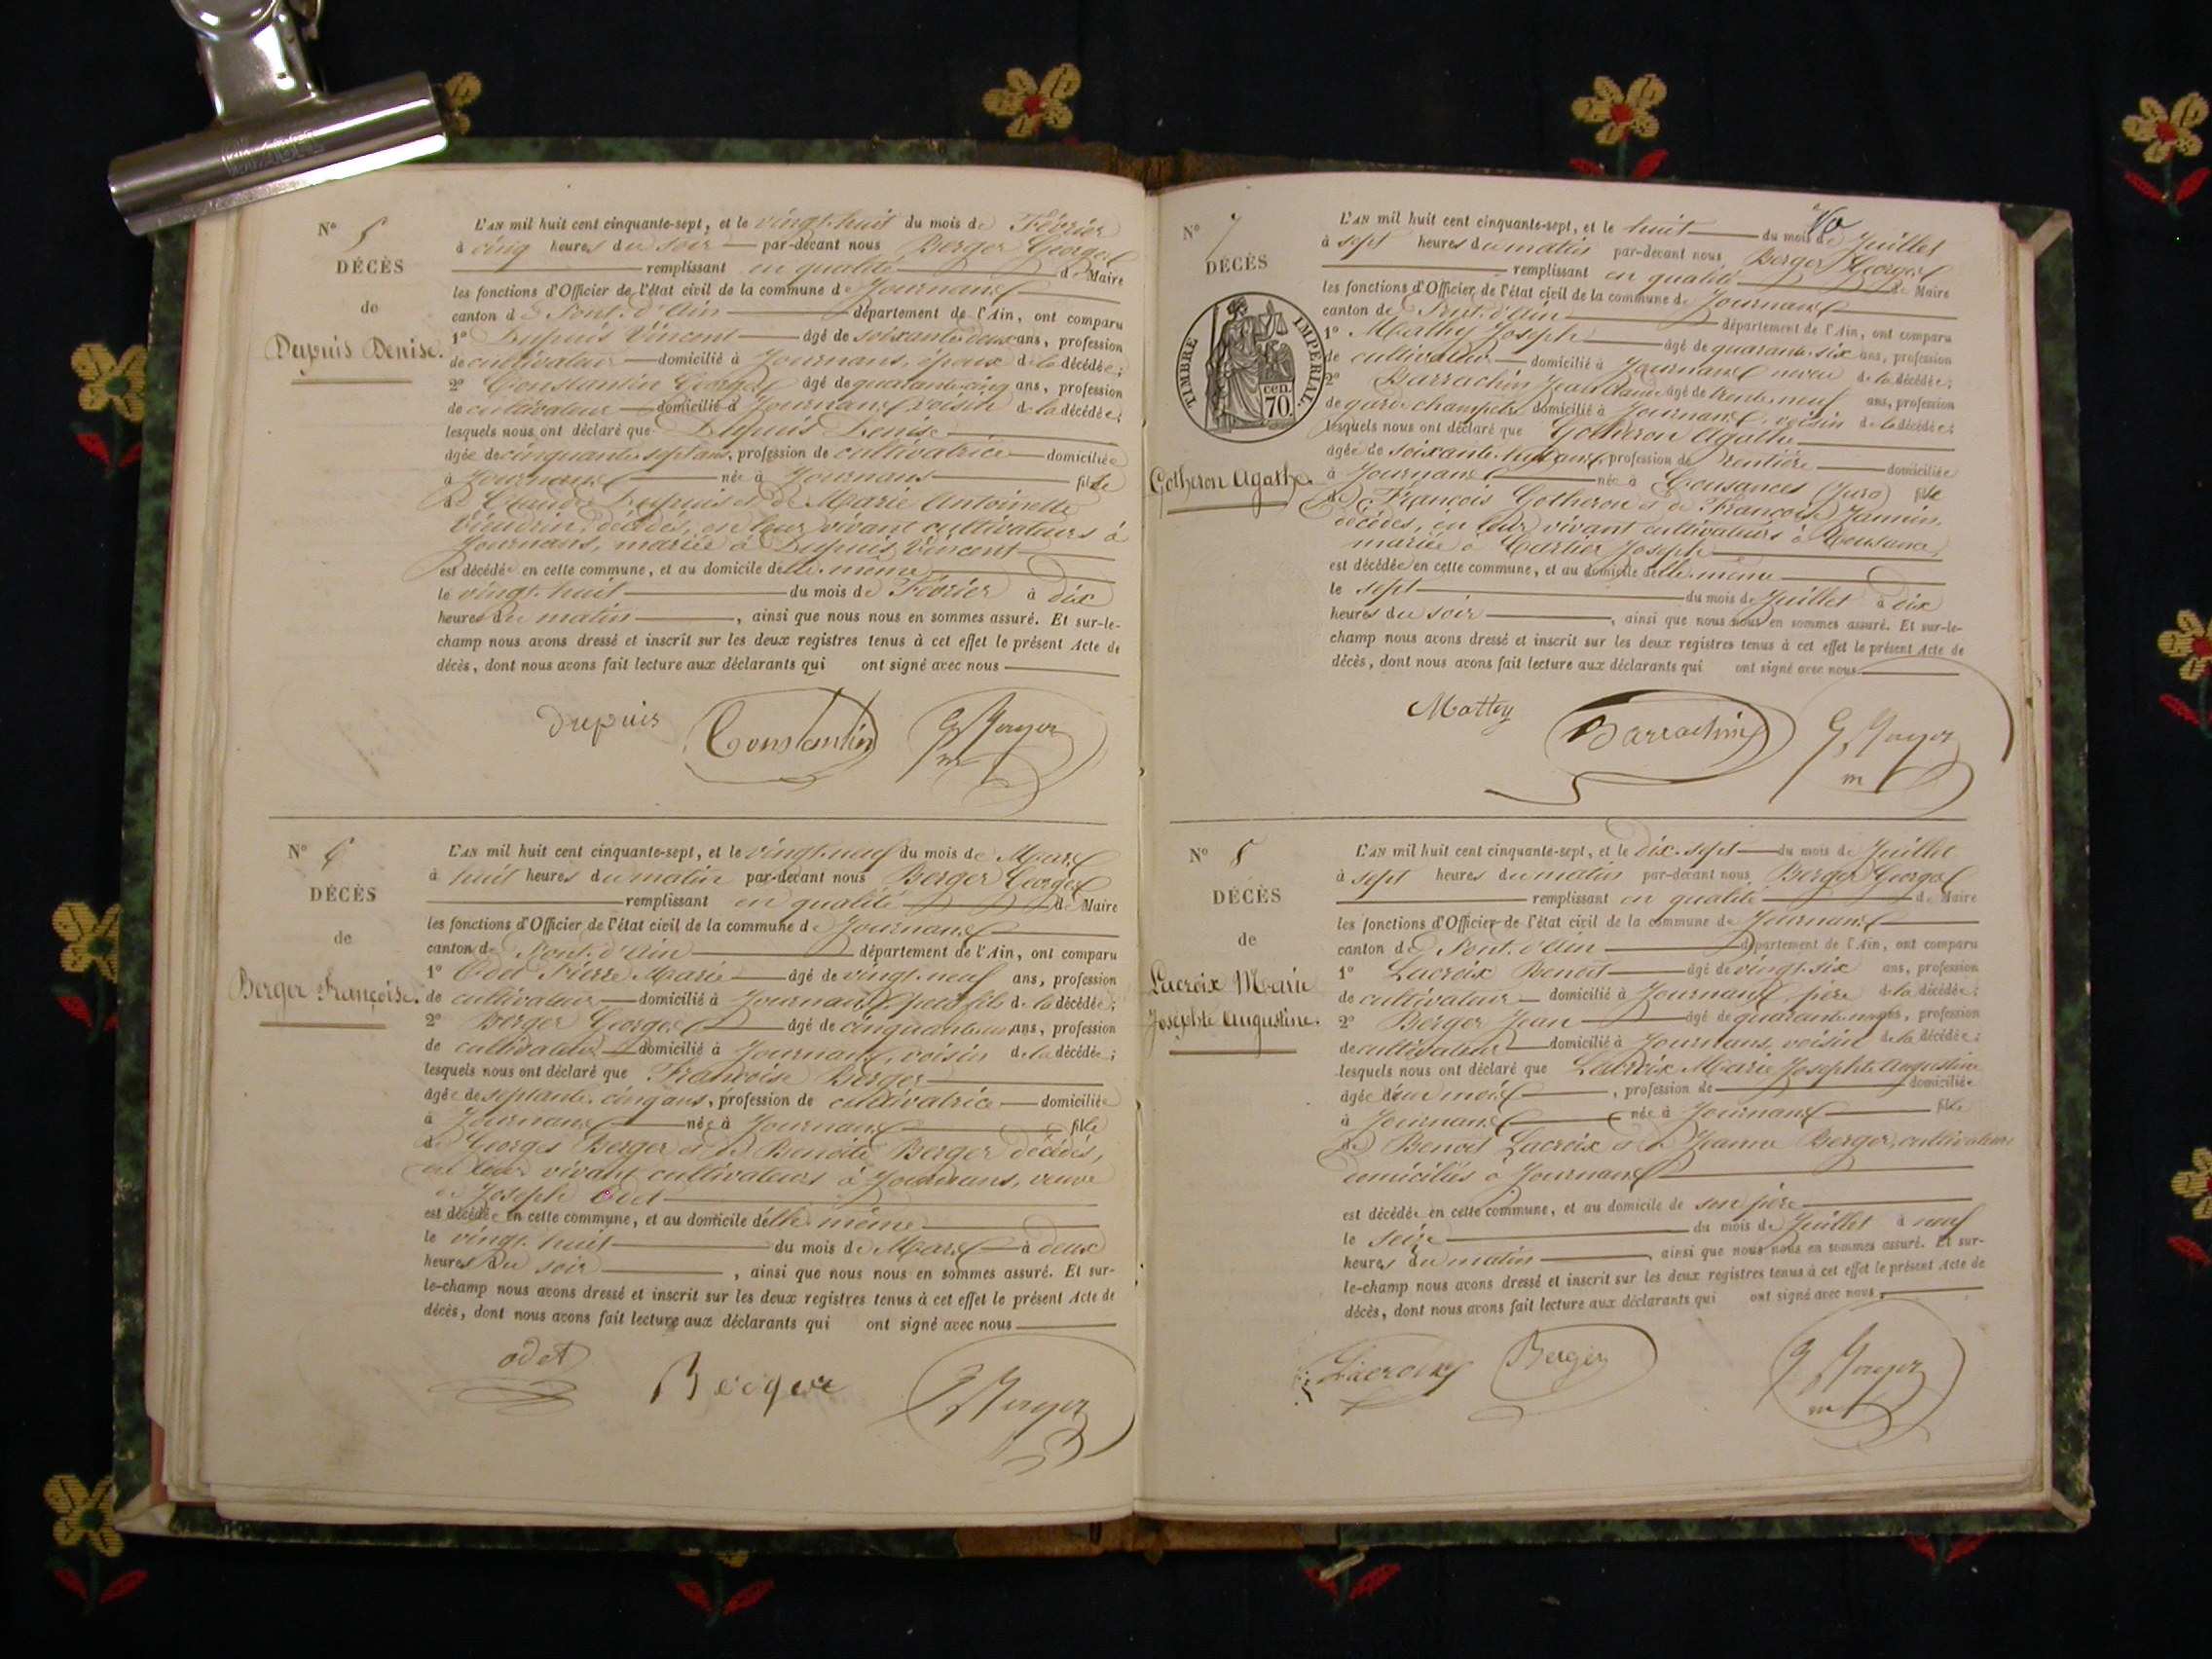 N° 5
DÉCÈS
de
Dupuis Denise.
L'AN mil huit cent cinquante-sept, et le vingt-huit du mois de Février
à cinq heures du soir par-devant nous Berger Georges
remplissant en qualité de Maire
les fonctions d'Officier de l'état civil de la commune de Journans
canton de Pont-d'Ain département de l'Ain, ont comparu
1° Dupuis Vincent âgé de soixante-deux ans, profession
de cultivateur domicilié à Journans, époux de la décédée;
2° Constantin Georges âgé de quarante-cinq ans, profession
de cultivateur domicilié à Journans voisin de la décédée;
lesquels nous ont déclaré que Dupuis Denise
âgée de cinquante-sept ans, profession de cultivatrice domiciliée
à Journans née à Journans fille
de Claude Dupuis et de Marie Antoinette
décédés, en leur vivant cultivateurs à
Journans, mariée à Dupuis Vincent
est décédée en cette commune, et au domicile d'elle-même
le vingt-huit du mois de Février à dix
heures du matin, ainsi que nous nous en sommes assuré. Et sur-le-
champ nous avons dressé et inscrit sur les deux registres tenus à cet effet le présent Acte de
décès, dont nous avons fait lecture aux déclarants qui ont signé avec nous
Dupuis Constantin G. Berger
m
N° 6
DÉCÈS
de
Berger Françoise.
L'AN mil huit cent cinquante-sept, et le vingt-neuf du mois de Mars
à huit heures du matin par-devant nous Berger Georges
remplissant en qualité de Maire
les fonctions d'Officier de l'état civil de la commune de Journans
canton de Pont-d'Ain département de l'Ain, ont comparu
1° Odet Pierre Marie âgé de vingt-neuf ans, profession
de cultivateur domicilié à Journans petit fils de la décédée;
2° Berger Georges âgé de cinquante-un ans, profession
de cultivateur domicilié à Journans, voisin de la décédée;
lesquels nous ont déclaré que Françoise Berger
âgée de septante-cinq ans, profession de cultivatrice domiciliée
à Journans née à Journans fille
de Georges Berger et de Benoite Berger décédés,
en leur vivant cultivateurs à Journans, veuve
de Joseph Odet
est décédée en cette commune, et au domicile d'elle-même
le vingt-huit du mois de Mars à deux
heures du soir, ainsi que nous nous en sommes assuré. Et sur-
le-champ nous avons dressé et inscrit sur les deux registres tenus à cet effet le présent Acte de
décès, dont nous avons fait lecture aux déclarants qui ont signé avec nous
odet Berger G. Berger
N° 7
DÉCÈS
TIMBRE IMPÉRIAL.
cen.
70.
Gotheron Agathe.
L'AN mil huit cent cinquante-sept, et le huit du mois de Juillet
à sept heures du matin par-devant nous Berger Georges
remplissant en qualité de Maire
les fonctions d'Officier de l'état civil de la commune de Journans
canton de Pont-d'Ain département de l'Ain, ont comparu
1° Mathy Joseph âgé de quarante-six ans, profession
de cultivateur domicilié à Journans neveu de la décédée;
2° Barrachin Jean Claude âgé de trente-neuf ans, profession
de garde champêtre domicilié à Journans, voisin de la décédée;
lesquels nous ont déclaré que Gotheron Agathe
âgée de soixante-huit ans, profession de Rentière domiciliée
à Journans née à Cousances (Jura) fille
de François Gotheron et de Françoise Jannin,
décédés, en leur vivant cultivateurs à Cousance,
mariée à Cartier Joseph
est décédée en cette commune, et au domicile d'elle-même
le sept du mois de Juillet à dix
heures du soir, ainsi que nous nous en sommes assuré. Et sur-le-
champ nous avons dressé et inscrit sur les deux registres tenus à cet effet le présent Acte de
décès, dont nous avons fait lecture aux déclarants qui ont signé avec nous
Mathy Barrachin G. Berger
m
N° 8
DÉCÈS
de
Lacroix Marie
Josephte Augustine.
L'AN mil huit cent cinquante-sept, et le dix-sept du mois de Juillet
à sept heures du matin par-devant nous Berger Georges
remplissant en qualité de Maire
les fonctions d'Officier de l'état civil de la commune de Journans
canton de Pont-d'Ain département de l'Ain, ont comparu
1° Lacroix Benoit âgé de vingt-six ans, profession
de cultivateur domicilié à Journans, père de la décédée;
2° Berger Jean âgé de ans, profession
de cultivateur domicilié à Journans, voisin de la décédée;
lesquels nous ont déclaré que Lacroix Marie Josephte Augustine
âgée d'un mois, profession de domiciliée
à Journans née à Journans fille
de Benoit Lacroix et de Jeanne Berger, cultivateurs
domiciliés à Journans
est décédée en cette commune, et au domicile de son père
le seize du mois de Juillet à neuf
heures du matin, ainsi que nous nous en sommes assuré. Et sur-
le-champ nous avons dressé et inscrit sur les deux registres tenus à cet effet le présent Acte de
décès, dont nous avons fait lecture aux déclarants qui ont signé avec nous.
Lacroix Berger G. Berger
m